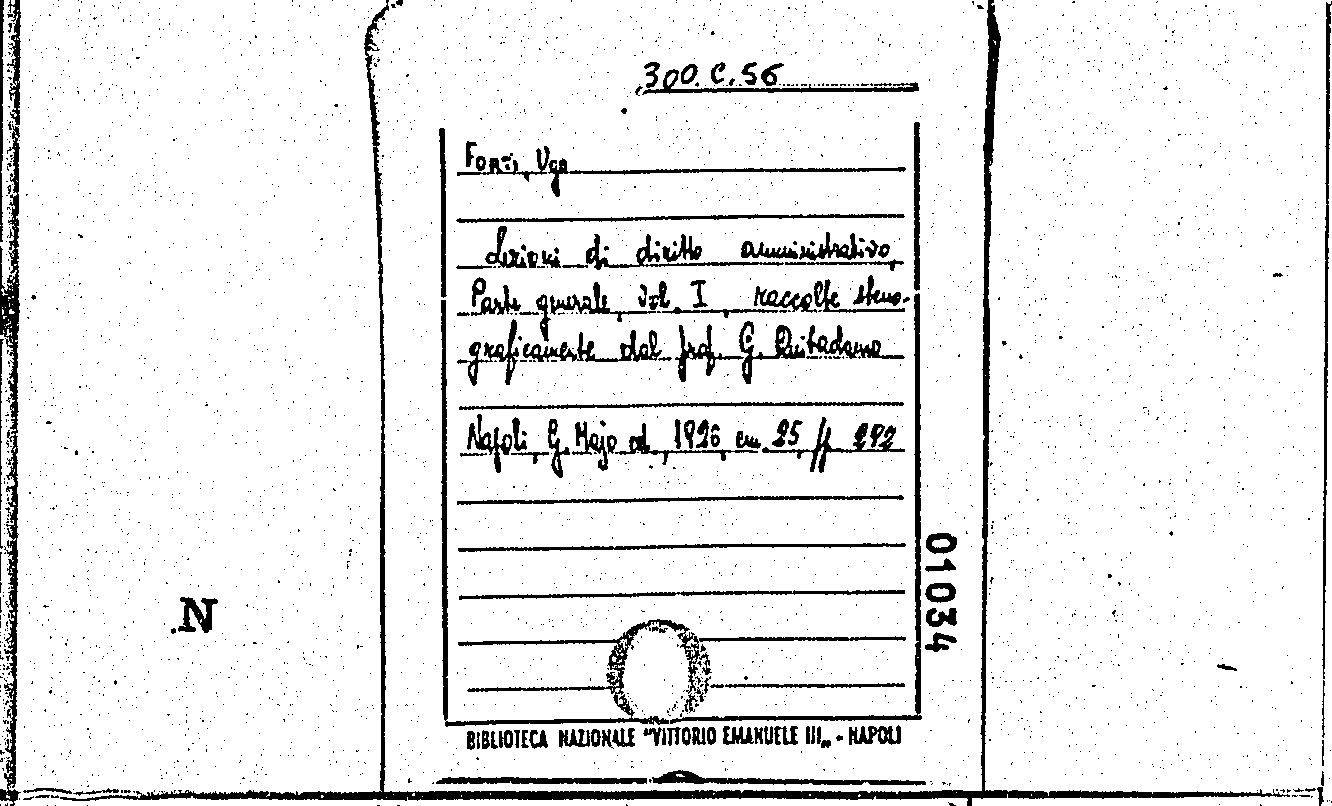 300.C.56
Forti, Ugo
Lezioni di diritto amministrativo,
Parte generale, vol. I, raccolte steno-
graficamente dal prof. G. Quitadamo
Napoli, G. Majo ed., 1926, cm. 25, pp. 292
01034
N
BIBLIOTECA NAZIONALE "VITTORIO EMANUELE III„ - NAPOLI